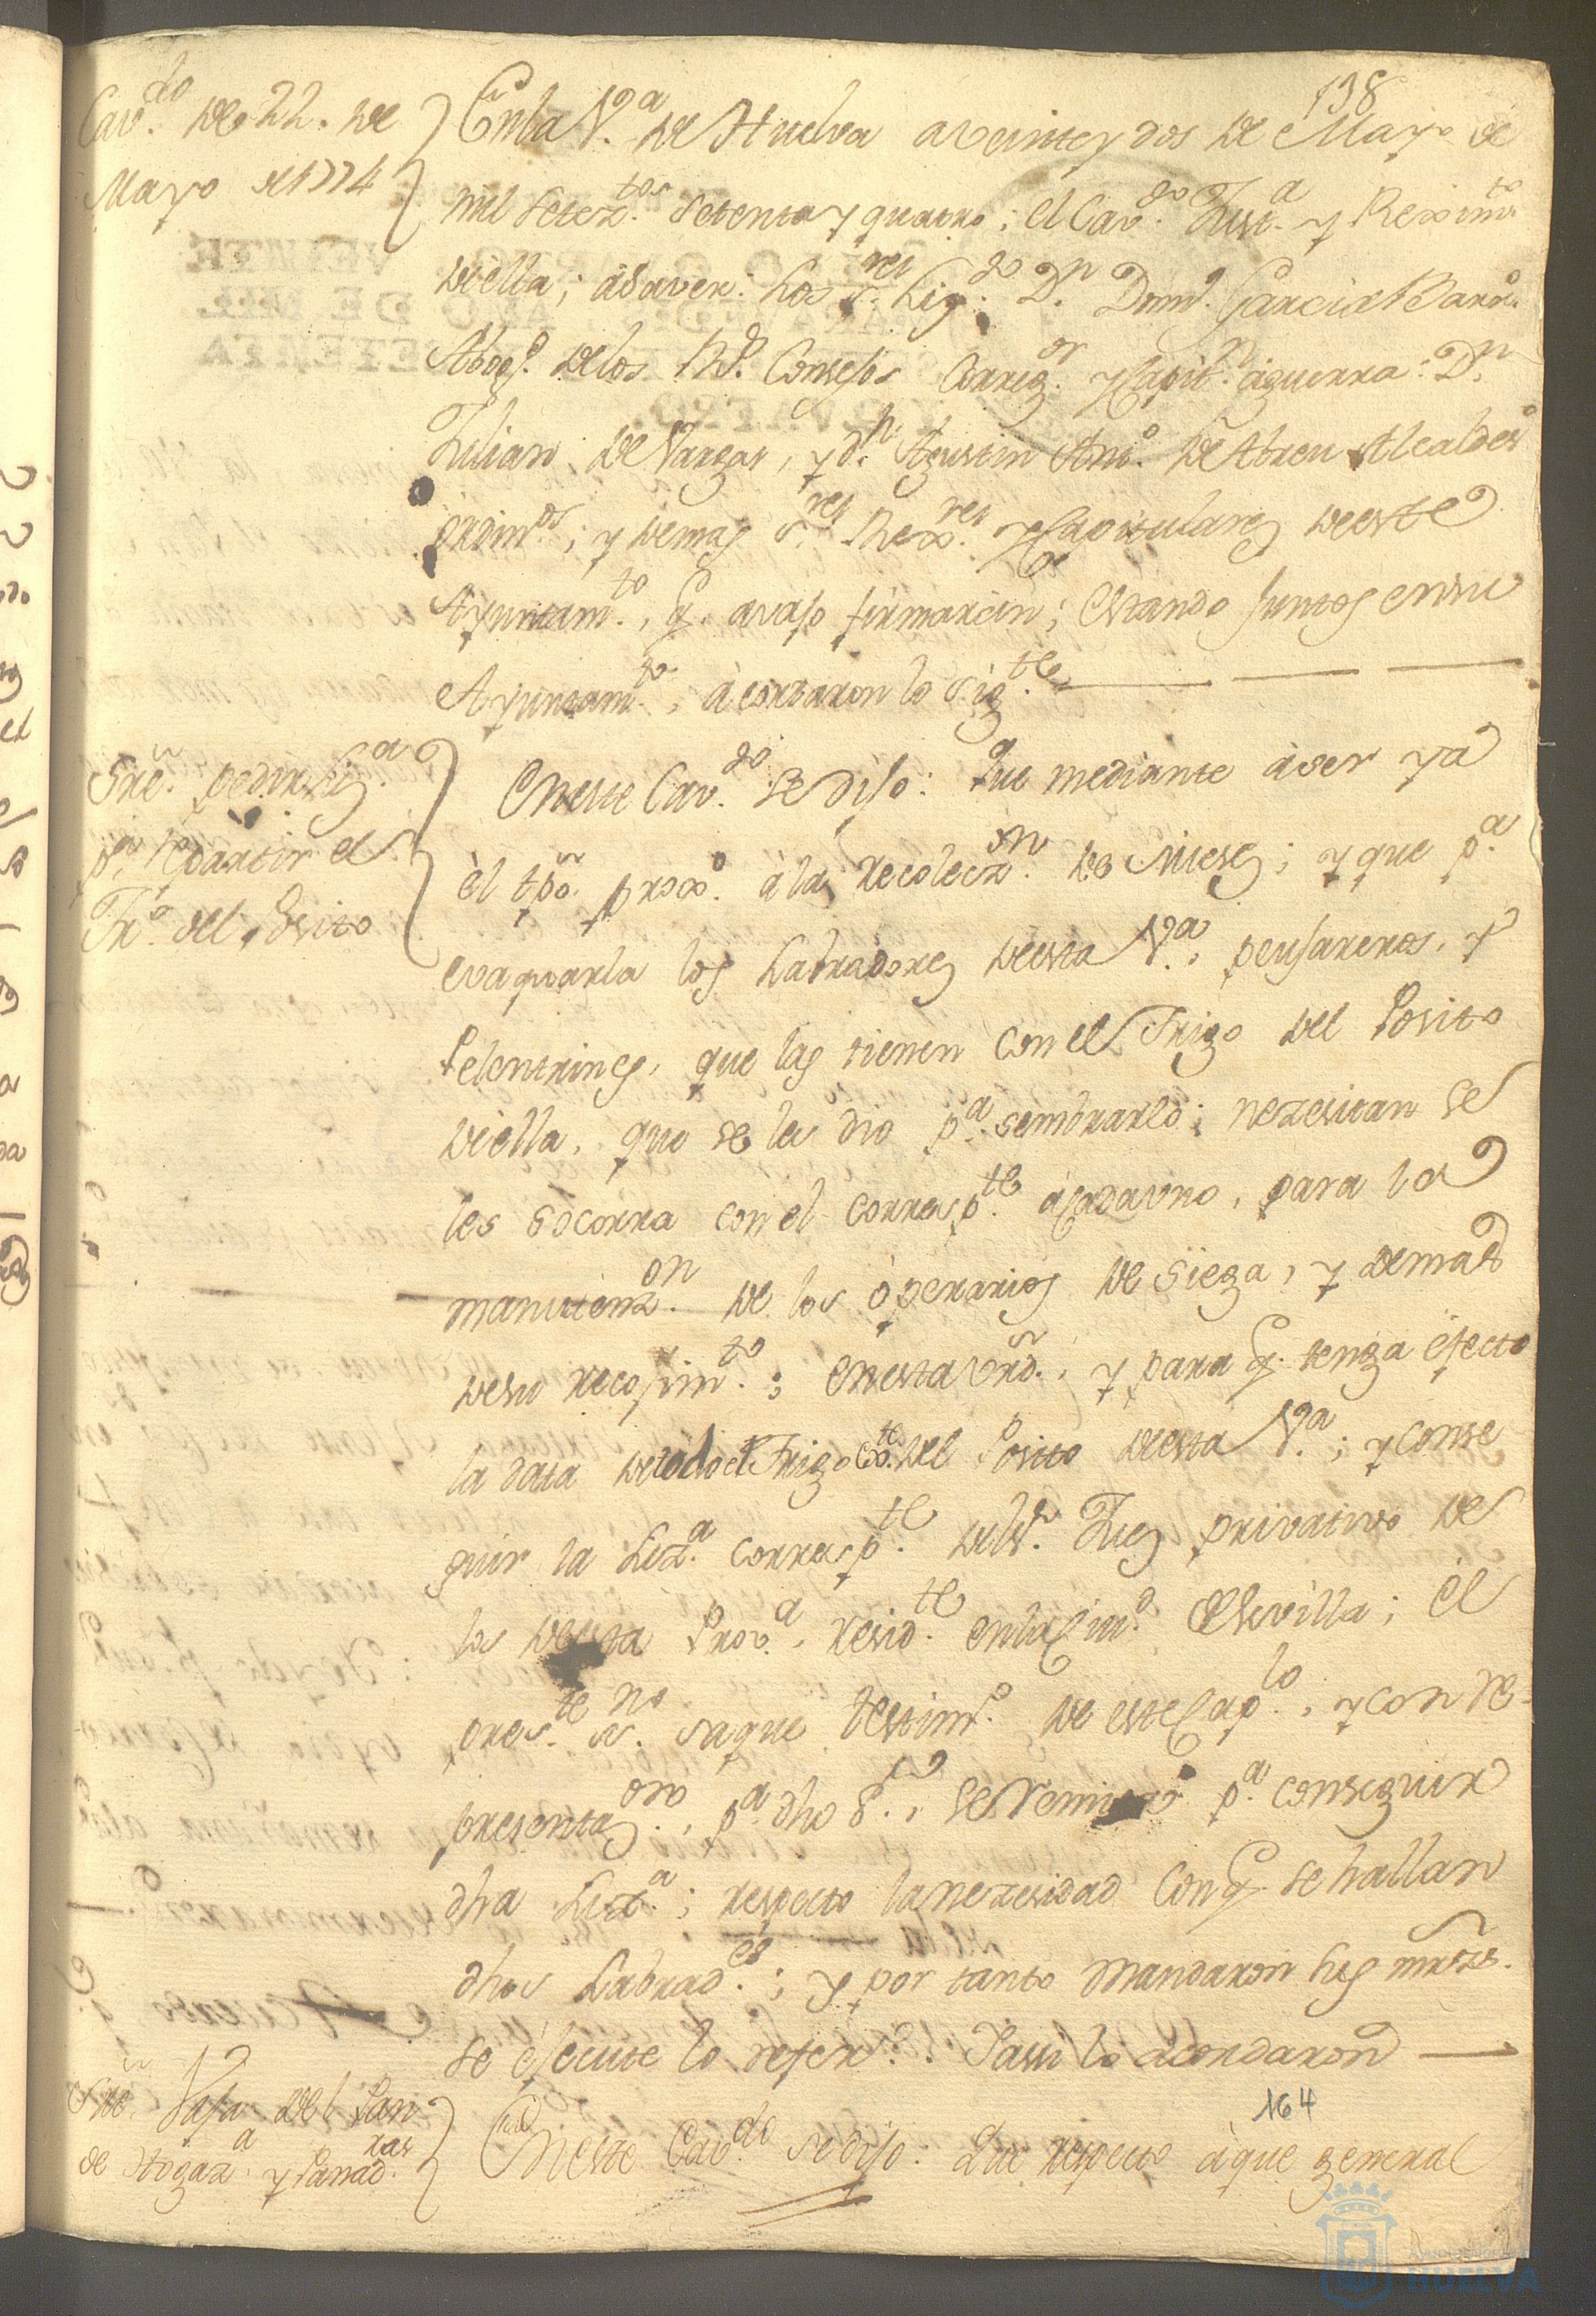 138
Cav.do de 22. de
Mayo de 1774
En la V.a de Huelva a veinte y dos de Mayo de
mil setez.tos setenta y quatro; el Cav.do Just.a y Reximto
de ella; à saver: Los S.res Lig.do D.n Domo. Garcia Barro.
Abogo. de los Rs. Consejos Correg.or y Capit.n à guerra: D.n
Julian de Vargas, y d.n Agustin Anto. de Abreu Alcaldes
ordin.os; y demas S.res Rex.res y Capitulares de este
Ayuntam.to, q. avajo firmarán; estando juntos en su
Ayuntam.to, àcordaron lo sig.te
Sre. pedir Liz.a
p.a repartir el
Tr.o del Posito
En este Cav.do se dijo: Que mediante à ser ya
èl tpo. proxo. à la recolecz.on de Mieses; y que p.a
evaquarla los Labradores de esta V.a, peujareros, y
Pelentrines, que las tienen con el Trigo del Posito
de ella, que se les dio p.a sembrarlo; nezesitan se
les socorra con el corresp.te à cada uno, para la
manutenz.on de los òperarios de Siega, y demas
de su recojim.to; en esta vrd., y para q. tenga èfecto
la data de todo el Trigo ex.te del Posito de esta V.a; y conse
guir la Liz.a corresp.te del Sr. Juez privativo de
los de esta Prov.a, resid.te en la Ciud. de Sevilla; el
pres.te ss.no saque testimo. de este Cap.lo, y con re-
presentaz.on, p.a dho S.r, se remita p.a conseguir
dha Liz.a; respecto la nezesidad con q. se hallan
dhos Labrad.es; y por tanto mandaron sus mrzs.
se èjecute lo referdo. Y assi lo àcordaron
164
Sre. Vaja del Pan
de Hogaz.a y Panad.ras
En este Cav.do se dijo: Que respecto à que general
Ayuntamiento
HUELVA